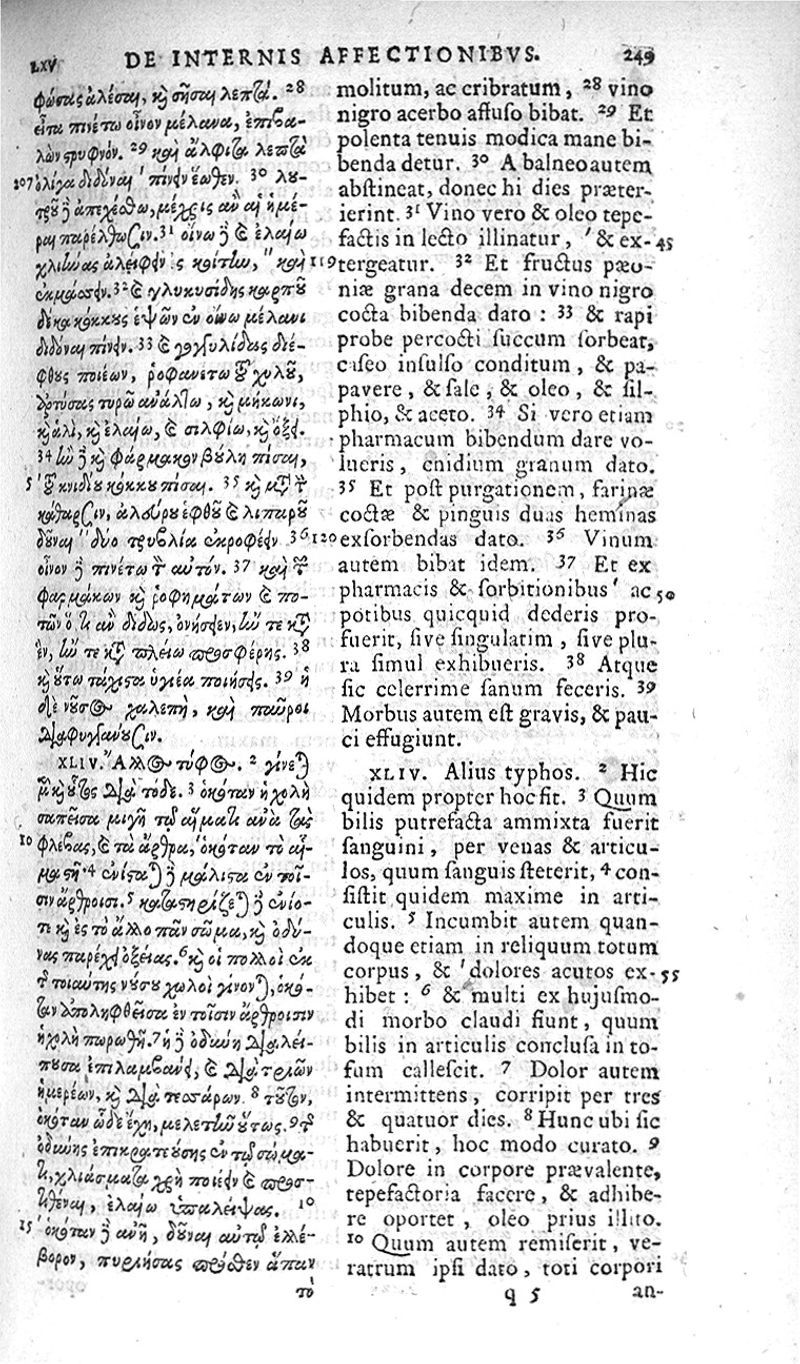 LXV DE INTERNIS AFFECTIONIBVS. 249
φώσας ἀλέσαι, καὶ σῆσαι λεπτά. 28
εἶτα πινέτω οἶνον μέλανα, ἐπιβα-
λὼν τρυφνόν. 29 καὶ ἄλφιτα λεπτὰ
107 ὀλίγα διδόναι ' πίνειν ἕωθεν. 30 λου-
τροῦ δὲ ἀπεχέσθω, μέχρις ἂν αἱ ἡμέ-
ραι παρέλθωσιν. 31 οἴνῳ δὲ καὶ ἐλαίῳ
χλιῶας ἀλείφειν ἐς κοίτην, " καὶ 119
ἐκμάσσειν. 32 καὶ γλυκυσίδης καρποῦ
δέκα κόκκους ἑψῶν ἐν οἴνῳ μέλανι
διδόναι πίνειν. 33 καὶ γογγυλίδας διέ-
φθους ποιέων, ῥοφανέτω τοῦ χυλοῦ,
ἀρτύσας τυρῷ ἀνάλτῳ, καὶ μήκωνι,
καὶ ἁλὶ, καὶ ἐλαίῳ, καὶ σιλφίῳ, καὶ ὄξει.
34 ἢν δὲ καὶ φάρμακον βούλῃ πῖσαι,
5 ' τοῦ κνιδίου κόκκου πῖσαι. 35 καὶ μετὰ τὴν
κάθαρσιν, ἀλεύρου ἑφθοῦ καὶ λιπαροῦ
δοῦναι " δύο τρυβλία ἐκροφέειν. 36 120
οἶνον δὲ πινέτω τὸν αὐτόν. 37 καὶ τῶν
φαρμάκων καὶ ῥοφημάτων καὶ πο-
τῶν ὅ τι ἂν διδῷς, ὀνήσειεν, ἤν τε καθ'
ἓν, ἤν τε καὶ πλείω προσφέρῃς. 38
καὶ οὕτω τάχιστα ὑγιέα ποιήσεις. 39 ἡ
δὲ νοῦσος χαλεπὴ, καὶ παῦροι
διαφυγγάνουσιν.
XLIV. Ἄλλος τύφος. 2 γίνεται
μὲν οὗτος διὰ τόδε. 3 ὁκόταν ἡ χολὴ
σαπεῖσα μιγῇ τῷ αἵματι ἀνὰ τὰς
10 φλέβας, καὶ τὰ ἄρθρα, ὁκόταν τὸ αἷ-
μα στῇ· 4 ἐνίσταται δὲ μάλιστα ἐν τοῖ-
σιν ἄρθροισι. 5 καταστηρίζεται δὲ ἐνίο-
τε καὶ ἐς τὸ ἄλλο πᾶν σῶμα, καὶ ὀδύ-
νας παρέχει ὀξείας. 6 καὶ οἱ πολλοὶ ἐκ
τῆς τοιαύτης νούσου χωλοὶ γίνονται, ὁκό-
ταν ἀποληφθεῖσα ἐν τοῖσιν ἄρθροισιν
ἡ χολὴ πωρωθῇ. 7 ἡ δὲ ὀδύνη διαλεί-
πουσα ἐπιλαμβάνει, καὶ διὰ τριῶν
ἡμερέων, καὶ διὰ τεσσάρων. 8 τοῦτον,
ὁκόταν ὧδε ἔχῃ, μελετῇν οὕτως. 9 τῆς
ὀδύνης ἐπικρατεύσης ἐν τῷ σώμα-
τι, χλιάσματα χρὴ ποιέειν καὶ προσ-
τιθέναι, ἐλαίῳ ὑπαλείψας. 10
15 ' ὁκόταν δὲ ἀνῇ, δοῦναι αὐτῷ ἐλλέ-
βορον, πυριήσας πρόσθεν ἅπαν
τὸ
molitum, ac cribratum, 28 vino
nigro acerbo affuſo bibat. 29 Et
polenta tenuis modica mane bi-
benda detur. 30 A balneo autem
abſtineat, donec hi dies præter-
ierint. 31 Vino vero & oleo tepe-
factis in lecto illinatur, ' & ex- 45
tergeatur. 32 Et fructus pæo-
niæ grana decem in vino nigro
cocta bibenda dato : 33 & rapi
probe percocti ſuccum ſorbeat,
caſeo inſulſo conditum, & pa-
pavere, & ſale, & oleo, & ſil-
phio, & aceto. 34 Si vero etiam
pharmacum bibendum dare vo-
lueris, cnidium granum dato.
35 Et poſt purgationem, farinæ
coctæ & pinguis duas heminas
exſorbendas dato. 36 Vinum
autem bibat idem. 37 Et ex
pharmacis & ſorbitionibus ' ac 50
potibus quicquid dederis pro-
fuerit, ſive ſingulatim, ſive plu-
ra ſimul exhibueris. 38 Atque
ſic celerrime ſanum feceris. 39
Morbus autem eſt gravis, & pau-
ci effugiunt.
XLIV. Alius typhos. 2 Hic
quidem propter hoc fit. 3 Quum
bilis putrefacta ammixta fuerit
ſanguini, per venas & articu-
los, quum ſanguis ſteterit, 4 con-
ſiſtit quidem maxime in arti-
culis. 5 Incumbit autem quan-
doque etiam in reliquum totum
corpus, & ' dolores acutos ex- 55
hibet : 6 & multi ex hujuſmo-
di morbo claudi fiunt, quum
bilis in articulis concluſa in to-
fum calleſcit. 7 Dolor autem
intermittens, corripit per tres
& quatuor dies. 8 Hunc ubi ſic
habuerit, hoc modo curato. 9
Dolore in corpore prævalente,
tepefactoria facere, & adhibe-
re oportet, oleo prius illito.
10 Quum autem remiſerit, ve-
ratrum ipſi dato, toti corpori
q 5 an-